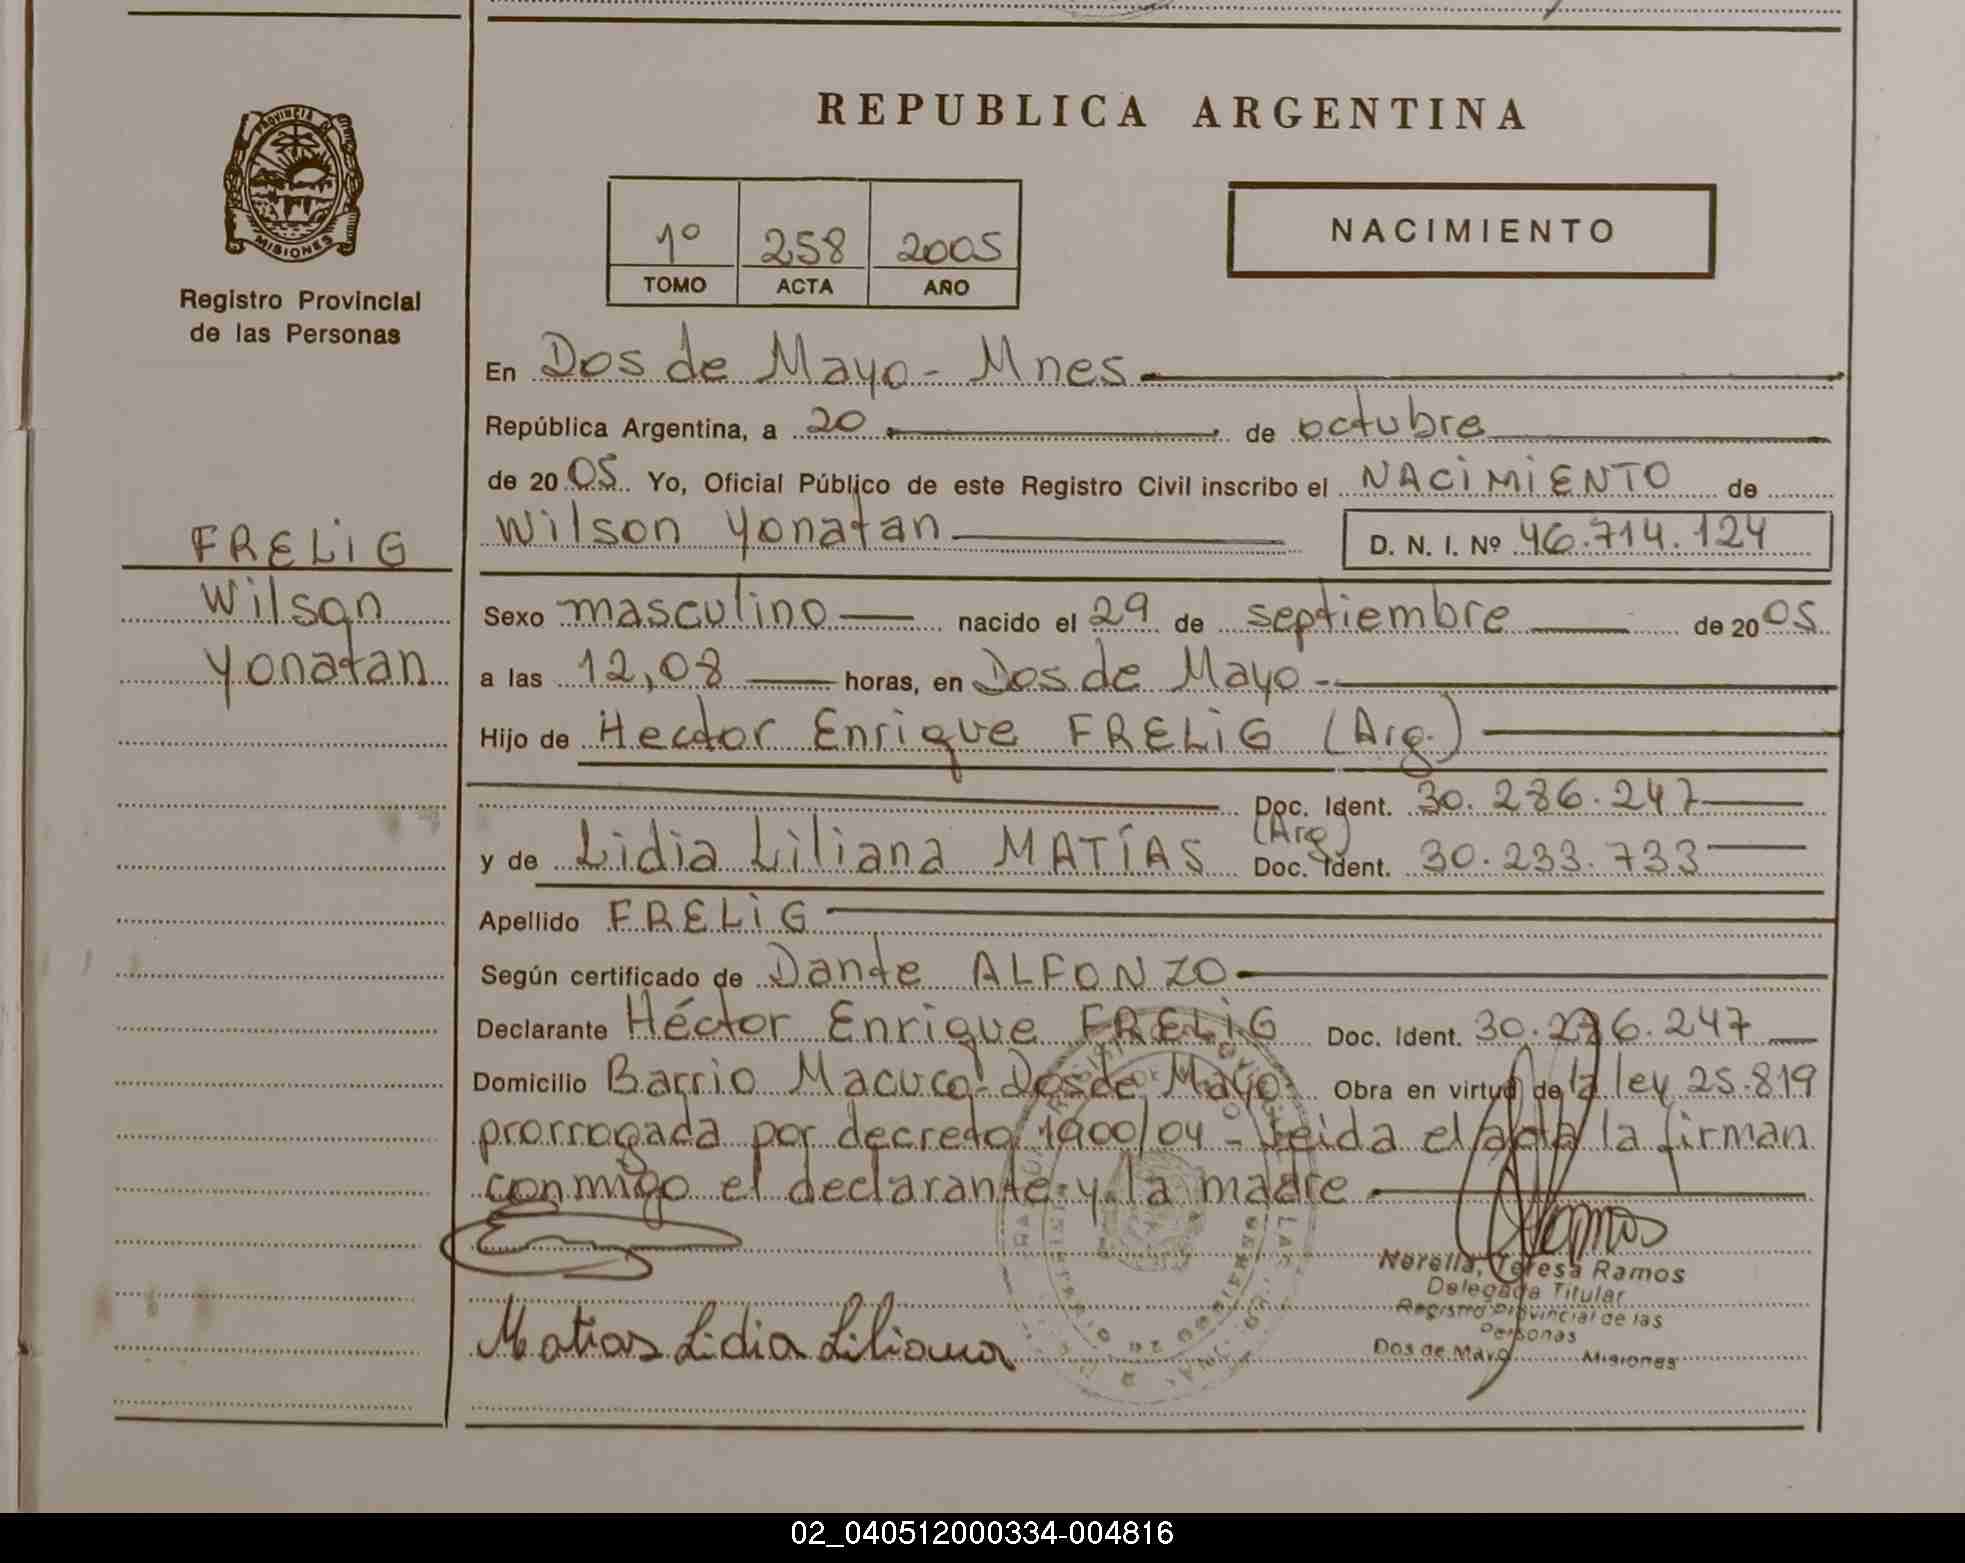 REPUBLICA ARGENTINA
PROVINCIA DE
MISIONES
Registro Provincial
de las Personas
1º 258 2005
TOMO ACTA AÑO
NACIMIENTO
En Dos de Mayo - Mnes
República Argentina, a 20 de octubre
de 2005 Yo, Oficial Público de este Registro Civil inscribo el NACIMIENTO de
Wilson Yonatan D. N. I. Nº 46.714.124
FRELIG
Wilson
Yonatan
Sexo masculino nacido el 29 de septiembre de 2005
a las 12,08 horas, en Dos de Mayo -
Hijo de Hector Enrique FRELIG (Arg.)
Doc. Ident. 30.286.247
y de Lidia Liliana MATÍAS (Arg) Doc. Ident. 30.233.733
Apellido FRELIG
Según certificado de Dante ALFONZO
Declarante Héctor Enrique FRELIG Doc. Ident. 30.276.247
Domicilio Barrio Macuco - Dos de Mayo Obra en virtud de la ley 25.819
prorrogada por decreto 1900/04 - Leida el acta la firman
conmigo el declarante y la madre
Ramos
Norella, Teresa Ramos
Delegada Titular
Registro Provincial de las
Personas
Dos de Mayo Misiones
Matias Lidia Liliana
02_040512000334-004816